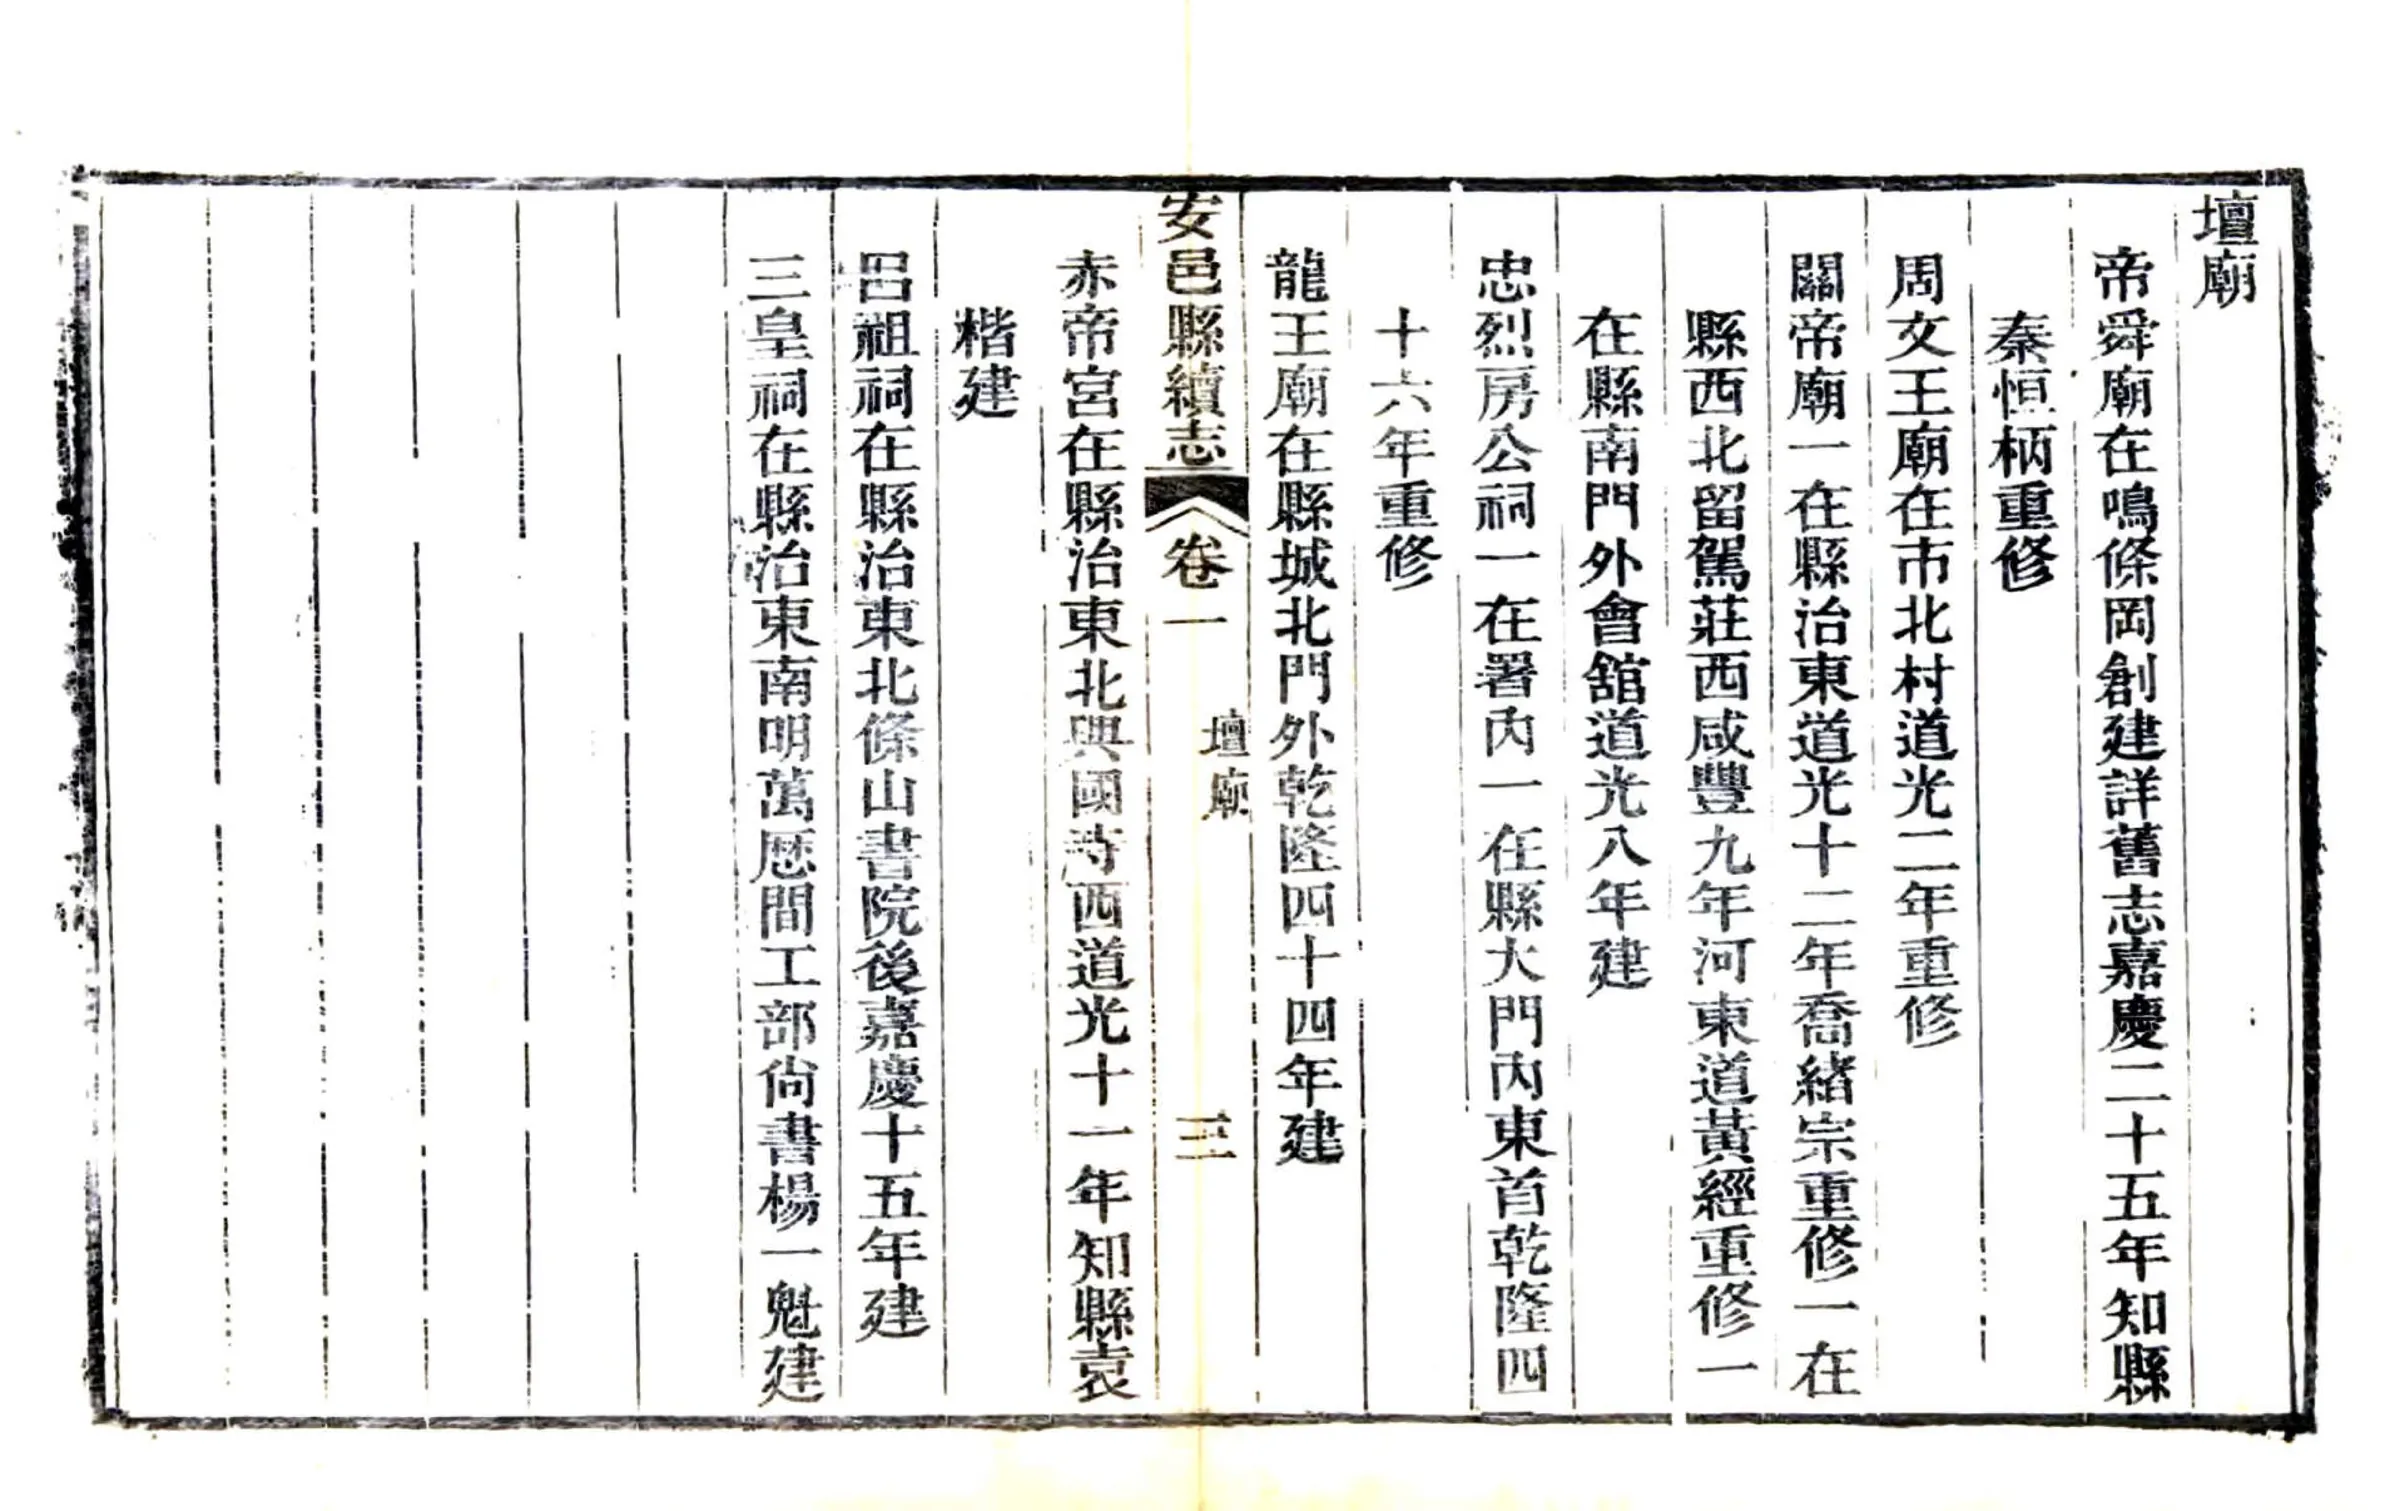 壇廟
帝舜廟在鳴條岡創建詳舊志嘉慶二十五年知縣
秦恒柄重修
周文王廟在市北村道光二年重修
關帝廟一在縣治東道光十二年喬緒宗重修一在
縣西北留駕莊西咸豐九年河東道黃經重修一
在縣南門外會舘道光八年建
忠烈房公祠一在署內一在縣大門內東首乾隆四
十六年重修
龍王廟在縣城北門外乾隆四十四年建
安邑縣續志 卷一 壇廟 三
赤帝宮在縣治東北興國寺西道光十一年知縣袁
楷建
呂祖祠在縣治東北條山書院後嘉慶十五年建
三皇祠在縣治東南明萬厯間工部尙書楊一魁建